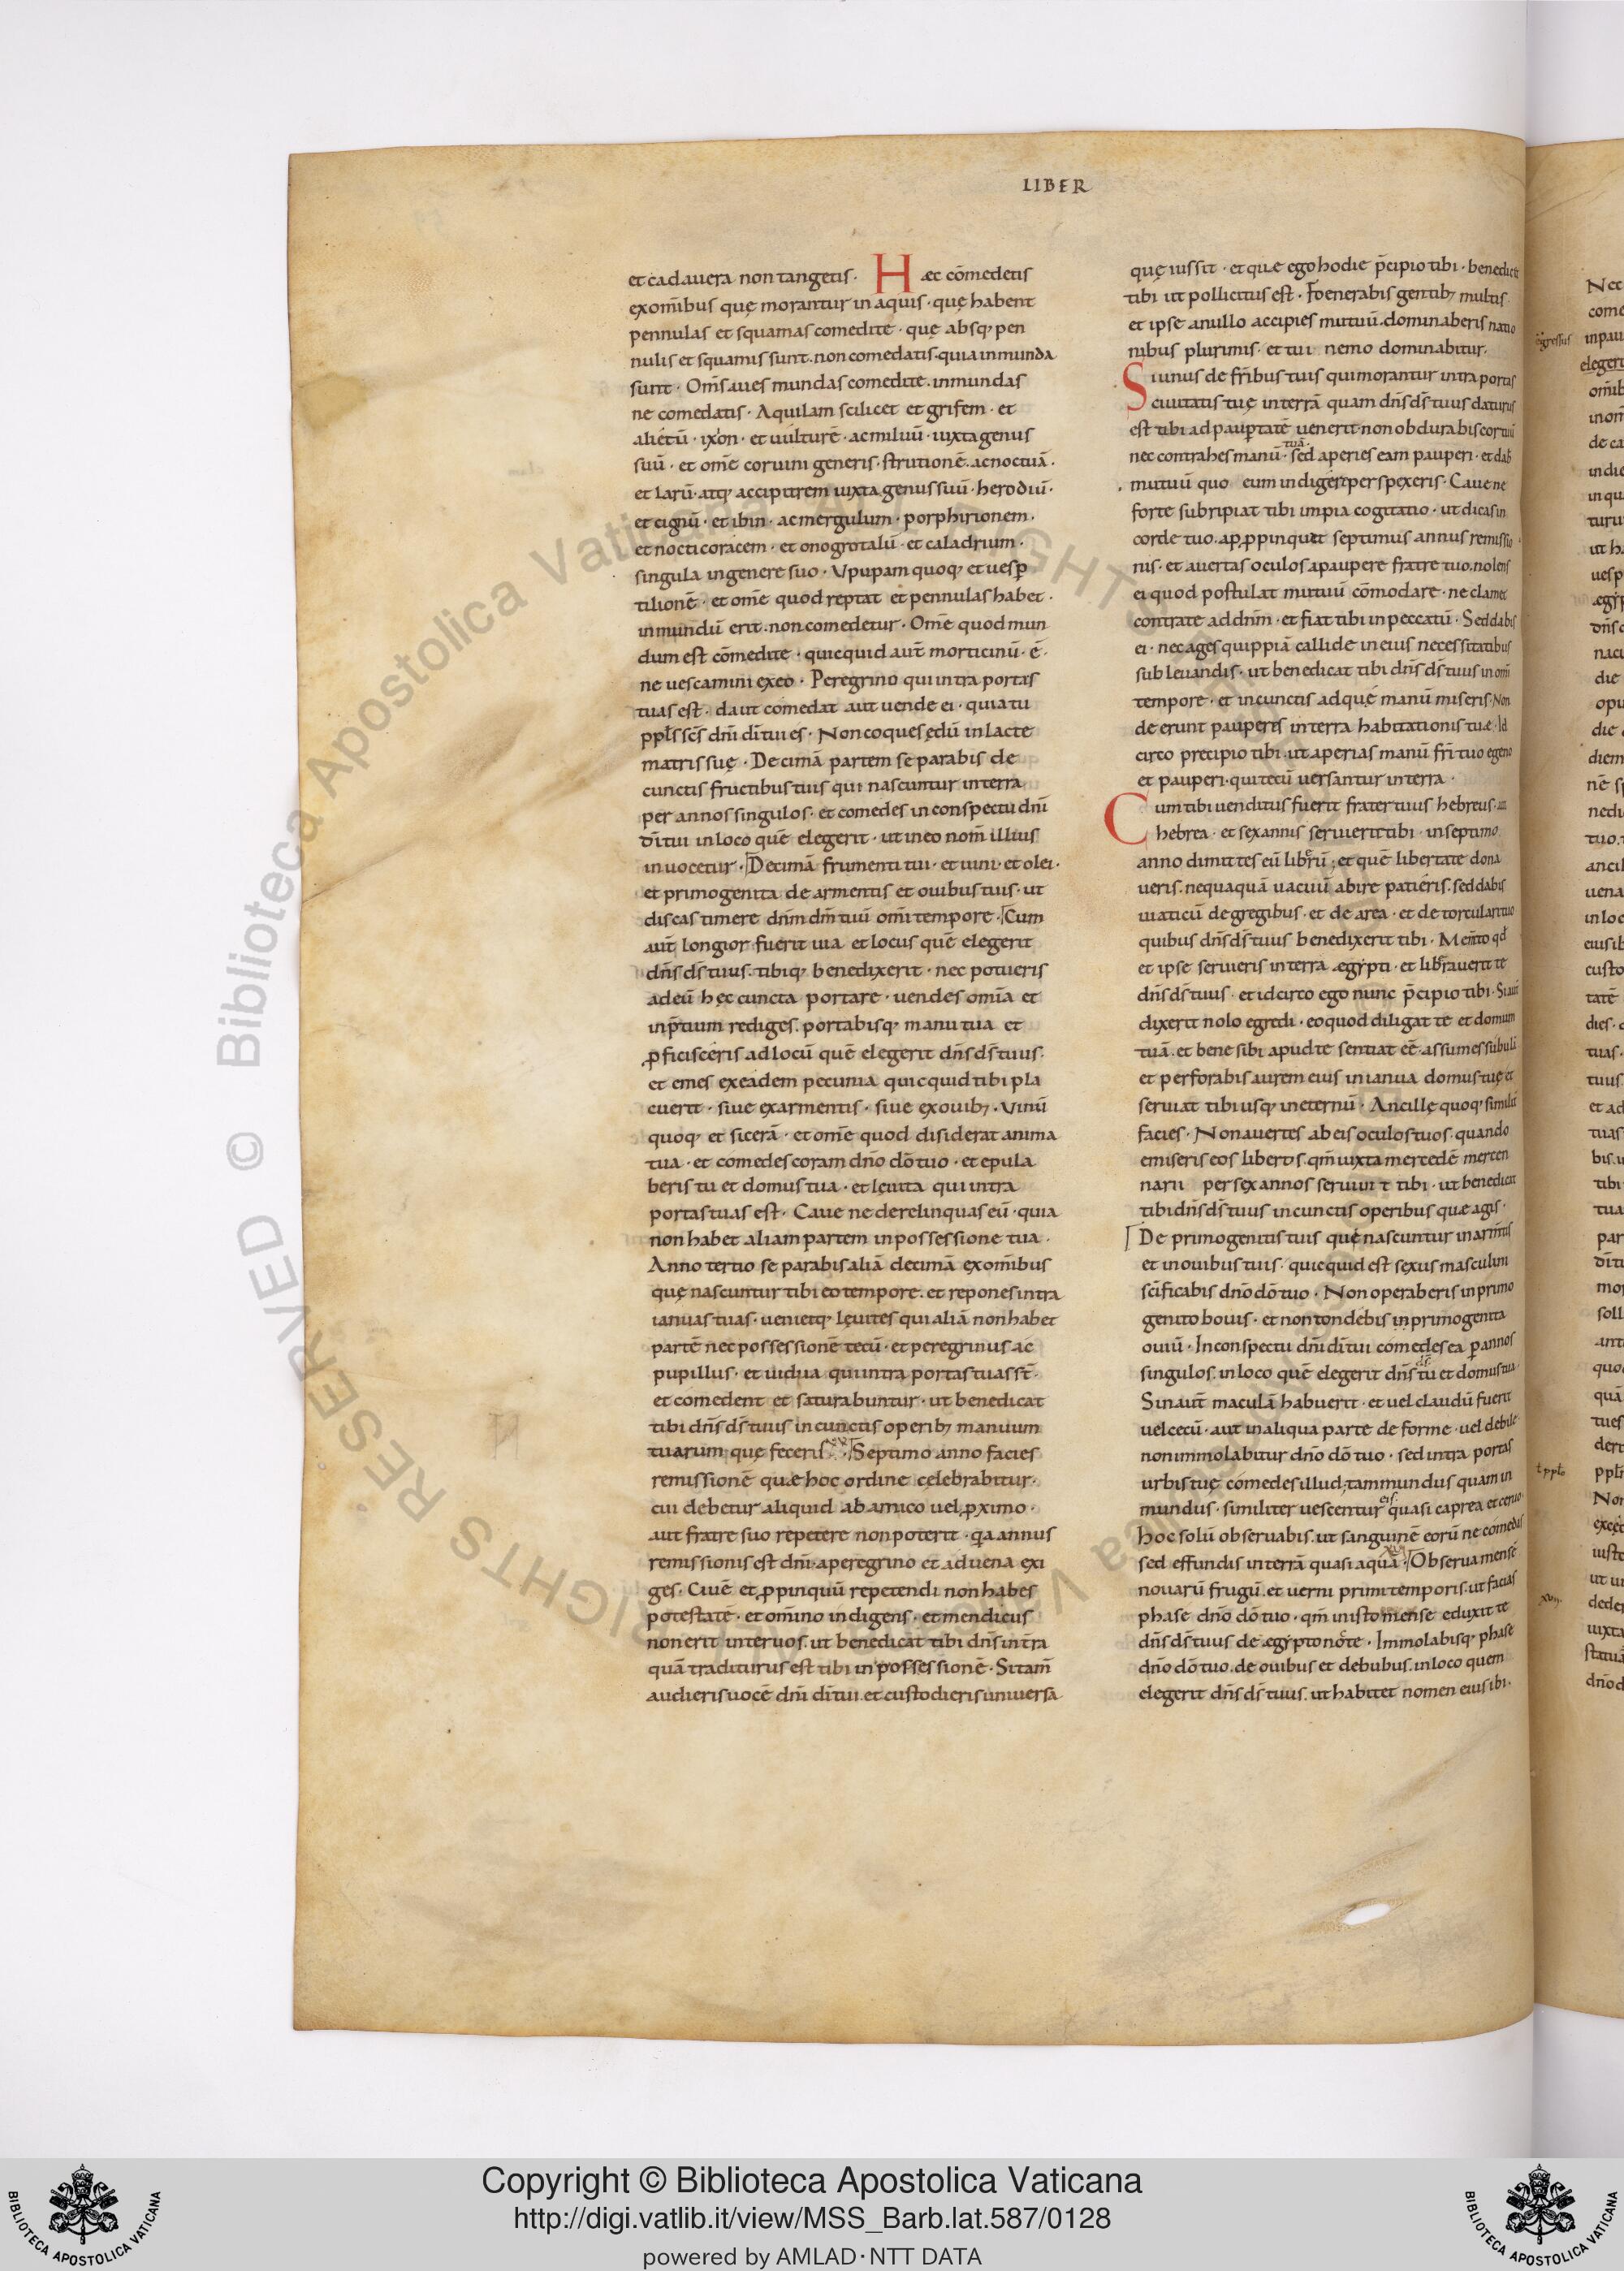 LIBER
et cadauera non tangetis · Hæc cōmedetis
ex om̄ibus quę morantur in aquis · quę habent
pennulas et squamas comedite · quę absq; pen
nulis et squamis sunt . non comedatis · quia inmunda
sunt · Om̄s aues mundas comedite . inmundas
ne comedatis · Aquilam scilicet et grifem · et
alietū · ixon · et uulturē · ac miluū · iuxta genus
suū · et om̄e coruini generis · strutionē . ac noctuā ·
et larū · atq; accipitrem iuxta genus suū · herodiū ·
et cignū · et ibin · ac mergulum · porphirionem ·
et nocticoracem · et onogrotalū · et caladrium ·
singula in genere suo · Vpupam quoq; et uesp̄
tilionē · et om̄e quod reptat et pennulas habet ·
inmundū erit . non comedetur · Om̄e quod mun
dum est cōmedite · quicquid aut̄ morticinū · ē ·
ne uescamini ex eo · Peregrino qui intra portas
tuas est · da ut comedat aut uende ei · quia tu
ppl̄s sc̄s dn̄i di tui es · Non coques ędū in lacte
matris suę · Decimā partem separabis de
cunctis fructibus tuis qui nascuntur in terra
per annos singulos · et comedes in conspectu dn̄i
di tui in loco quē elegerit · ut in eo nom̄ illius
inuocetur · Decimā frumenti tui · et uini · et olei ·
et primogenita de armentis et ouibus tuis · ut
discas timere dn̄m dm̄ tuū om̄i tempore · Cum
aut̄ longior fuerit uia et locus quē elegerit
dn̄s ds̄ tuus . tibiq; benedixerit · nec potueris
ad eū hęc cuncta portare · uendes om̄ia et
in p̄tium rediges . portabisq; manu tua et
ꝓficisceris ad locū quē elegerit dn̄s ds̄ tuus .
et emes ex eadem pecunia quicquid tibi pla
cuerit · siue ex armentis · siue ex ouib; · Vinū
quoq; et sicerā · et om̄e quod disiderat anima
tua · et comedes coram dn̄o dō tuo · et epula
beris tu et domus tua · et leuita qui intra
portas tuas est · Caue ne derelinquas eū · quia
non habet aliam partem in possessione tua ·
Anno tertio separabis aliā decimā ex om̄ibus
quę nascuntur tibi eo tempore . et repones intra
ianuas tuas · uenietq; leuites qui aliā non habet
partē nec possessionē tecū · et peregrinus ac
pupillus · et uidua qui intra portas tuas st̄ ·
et comedent et saturabuntur · ut benedicat
tibi dn̄s ds̄ tuus in cunctis operib; manuum
tuarum quę feceris · Septimo anno facies
remissionē quæ hoc ordine celebrabitur ·
cui debetur aliquid ab amico uel ꝓximo ·
aut fratre suo repetere non poterit · qa annus
remissionis est dn̄i · a peregrino et aduena exi
ges · Ciuē et ꝓpinquū repetendi non habes
potestatē · et om̄ino indigens · et mendicus
non erit inter uos . ut benedicat tibi dn̄s in tr̄a
quā traditurus est tibi in possessionē · Si tam̄
audieris uocē dn̄i di tui . et custodieris uniuersa
quę iussit · et quæ ego hodie p̄cipio tibi · benedicet
tibi ut pollicitus est · Foenerabis gentib; multis
et ipse a nullo accipies mutuū . dominaberis natio
nibus plurimis · et tui nemo dominabitur .
Si unus de fr̄ibus tuis qui morantur intra portas
ciuitatis tuę in terrā quam dn̄s ds̄ tuus daturus
est tibi ad paup̄tatē uenerit · non obdurabis cor tuū
tuā ·
nec contrahes manū · sed aperies eam pauperi · et dab̄
mutuū quo eum indigere perspexeris · Caue ne
forte subripiat tibi impia cogitatio · ut dicas in
corde tuo . apꝓpinquat septimus annus remissio
nis · et auertas oculos a paupere fratre tuo . nolens
ei quod postulat mutuū cōmodare · ne clamet
contra te ad dn̄m · et fiat tibi in peccatū · Sed dabis
ei · nec ages quippiā callide in eius necessitatibus
subleuandis · ut benedicat tibi dn̄s ds̄ tuus in om̄i
tempore · et in cunctis ad quę manū miseris · Non
deerunt pauperis in terra habitationis tuæ · Id
circo precipio tibi . ut aperias manū fr̄i tuo egeno
et pauperi · qui tecū uersantur in terra ·
Cum tibi uenditus fuerit frater tuus hebreus · aut
hebrea · et sex annis seruierit tibi · in septimo
anno dimittes eū liberū ; et quē libertate dona
ueris . nequaquā uacuū abire patieris . sed dabis
uiaticū de gregibus · et de area · et de torculari tuo
quibus dn̄s ds̄ tuus benedixerit tibi · Mem̄to qd̄
et ipse seruieris in terra ægypti · et liberauerit te
dn̄s ds̄ tuus · et idcirco ego nunc p̄cipio tibi · Si aut̄
dixerit nolo egredi · eo quod diligat te et domum
tuā . et bene sibi apud te sentiat eē . assumes subulā
et perforabis aurem eius in ianua domus tuę et
seruiat tibi usq; in eternū · Ancillę quoq; similit̄
facies · Non auertes ab eis oculos tuos · quando
emiseris eos liberos . qm̄ iuxta mercedē mercen
narii per sex annos seruiu t tibi · ut benedicat
tibi dn̄s ds̄ tuus in cunctis operibus quæ agis ·
De primogenitis tuis quę nascuntur in arm̄tis
et in ouibus tuis · quicquid est sexus masculini
sc̄ificabis dn̄o dō tuo · Non operaberis in primo
genito bouis · et non tondebis in primogenita
ouiū · In conspectu dn̄i di tui comedes ea p̄ annos
ds̄
singulos . in loco quē elegerit dn̄s tu et domus tua ·
Sin aut̄ maculā habuerit · et uel claudū fuerit
uel cecū · aut in aliqua parte deforme · uel debile
non immolabitur dn̄o dō tuo · sed intra portas
urbis tuę comedes illud . tam mundus quam in
eis ·
mundus · similiter uescentur quasi caprea et ceruo
hoc solū obseruabis . ut sanguinē eorū ne comedas
xvi
sed effundis in terrā quasi aquā · Obserua mensē
nouarū frugū . et uerni primi temporis . ut facias
phase dn̄o dō tuo · qm̄ in isto mense eduxit te
dn̄s ds̄ tuus de ægypto nocte · Immolabisq; phase
dn̄o dō tuo . de ouibus et de bubus . in loco quem
elegerit dn̄s ds̄ tuus . ut habitet nomen eius ibi ·
© Biblioteca Apostolica Vaticana
ALL RIGHTS RESERVED
Copyright © Biblioteca Apostolica Vaticana
http://digi.vatlib.it/view/MSS_Barb.lat.587/0128
powered by AMLAD·NTT DATA
BIBLIOTECA APOSTOLICA VATICANA
BIBLIOTECA APOSTOLICA VATICANA